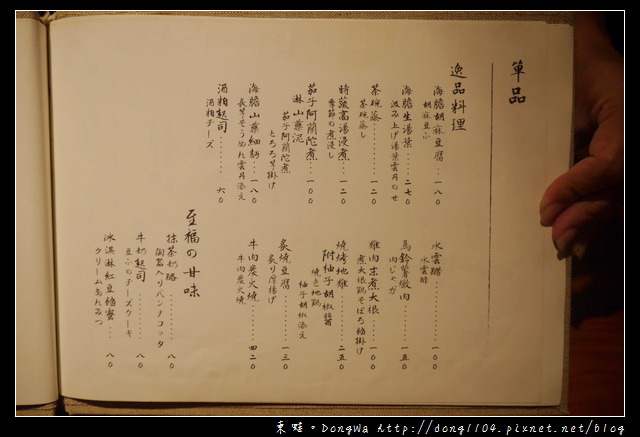 單品
逸品料理
海膽胡麻豆腐‥一八〇
胡麻豆ふ
海膽生湯葉‥二七〇
汲み上げ湯葉雲丹のせ
茶碗蒸‥‥‥一二〇
茶碗蒸し
時蔬高湯浸煮‥一二〇
季節の煮浸し
茄子阿蘭陀煮‥一〇〇
淋山藥泥
茄子阿蘭陀煮
とろろ芋掛け
海膽山藥細麵‥一八〇
長芋そうめん雲丹添え
酒粕起司‥‥‥六〇
酒粕チーズ
水雲醋‥‥‥一〇〇
水雲酢
馬鈴薯燉肉‥‥一五〇
肉じゃが
雞肉末煮大根‥一〇〇
煮大根鶏そぼろ餡掛け
燒烤地雞‥‥二五〇
附柚子胡椒醬
焼き地鶏
柚子胡椒添え
炙燒豆腐‥‥‥一三〇
炙り厚揚げ
牛肉炭火燒‥‥四二〇
牛肉炭火焼
至福の甘味
抹茶奶酪‥‥‥八〇
陶器入りパンナコッタ
牛奶起司‥‥‥八〇
豆ふのチーズケーキ
冰淇淋紅豆餡蜜‥八〇
クリームあんみつ
東蛙。Dongwa http://dong1104.pixnet.net/blog